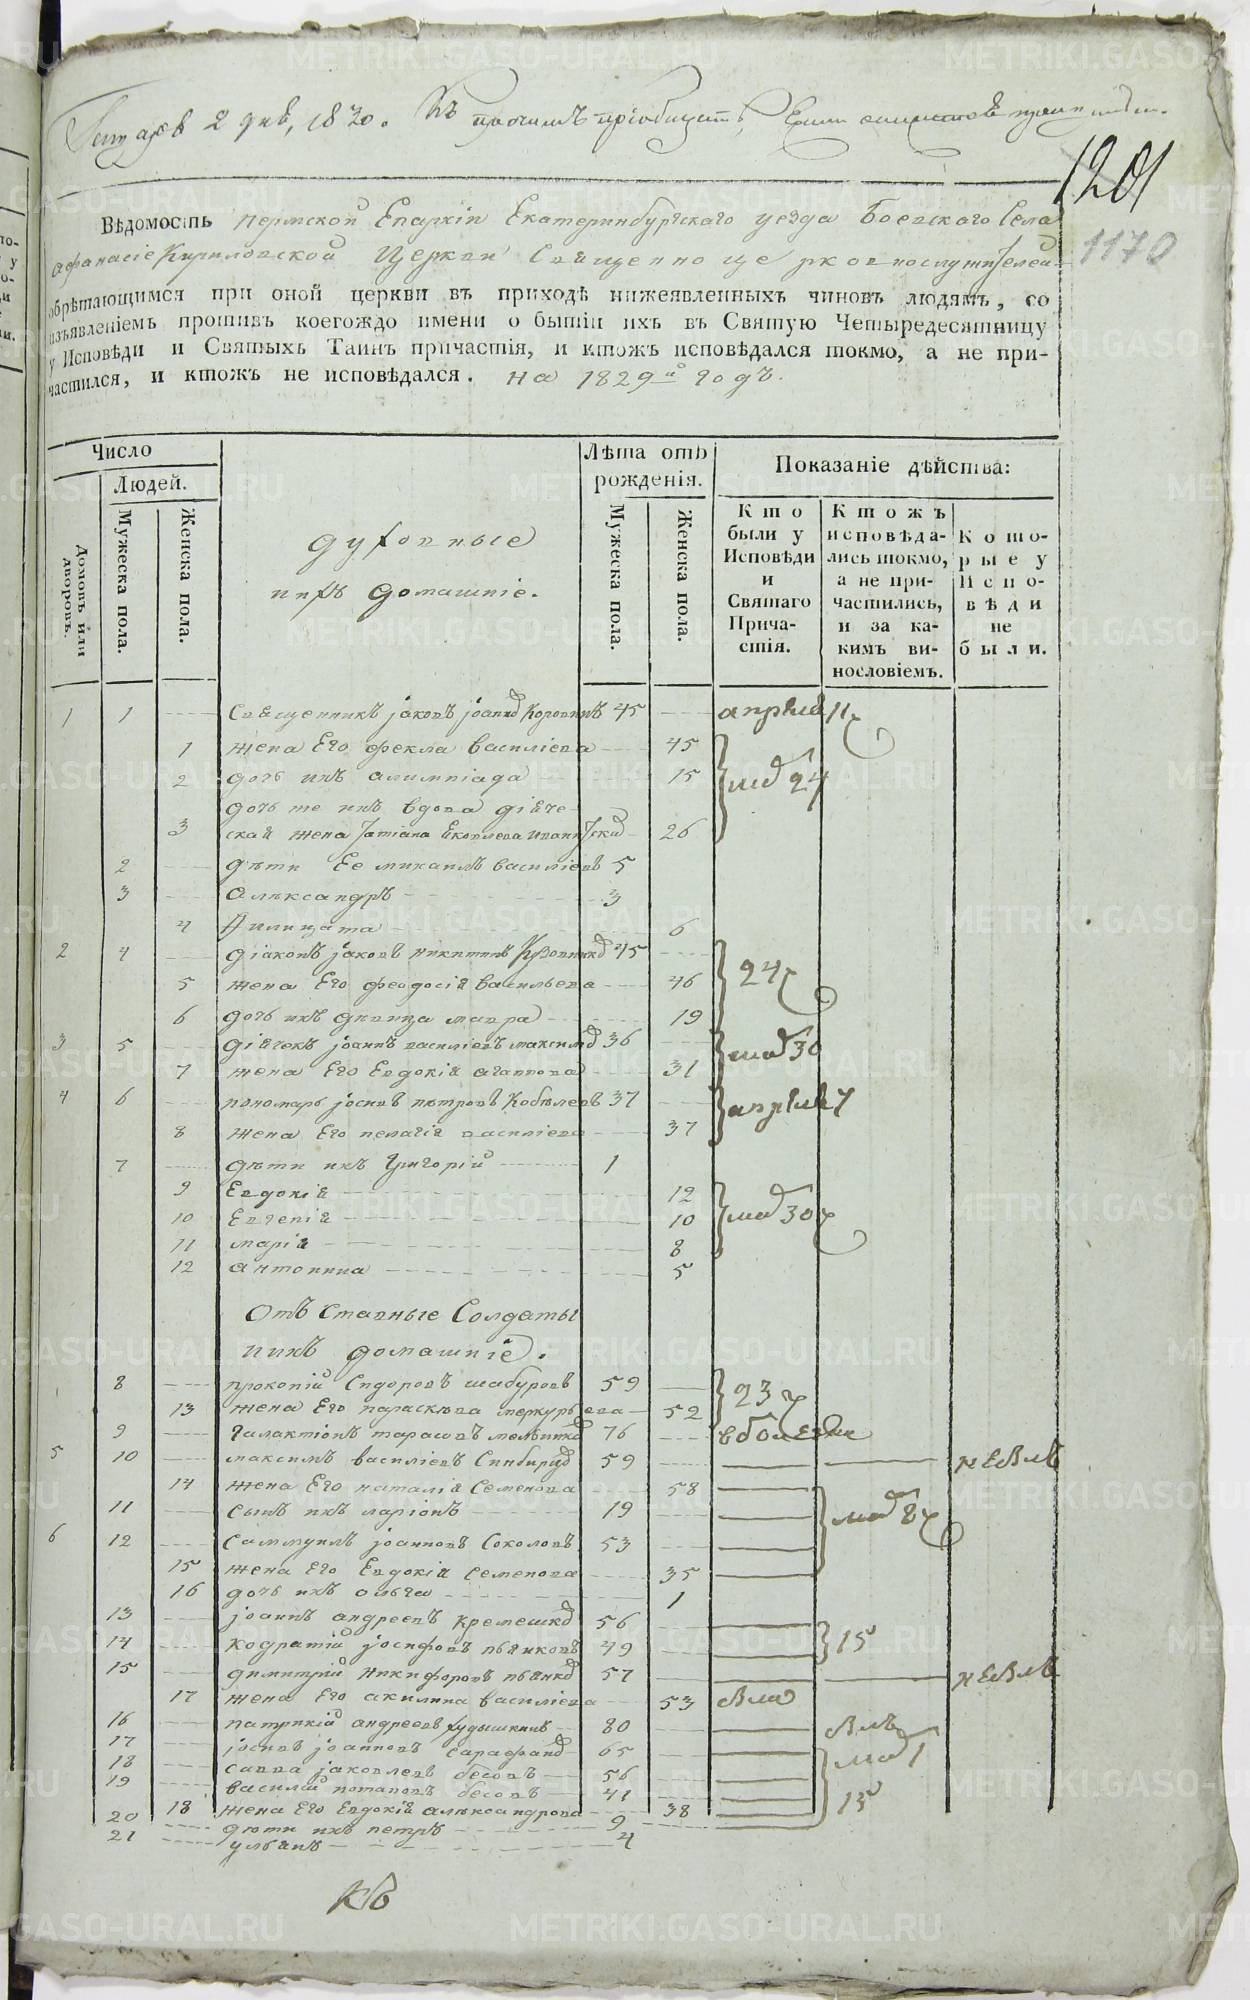 Генваря 2 дня, 1830. Къ прочимъ приобщить,
1201
1170
Вѣдомость Пермской Епархіи Екатеринбургскаго уезда Боевскаго Села
Афанасіе Кириловской Церкви Священно церковнослужителей
обрѣтающимся при оной церкви въ приходѣ нижеявленныхъ чиновъ людямъ, со
изъявленіемъ противъ коегождо имени о бытіи ихъ въ Святую Четыредесятницу
у Исповѣди и Святыхъ Таинъ причастія, и ктожъ исповѣдался токмо, а не при-
частился, и ктожъ не исповѣдался. на 1829й годъ.
Число
Людей.
Домовъ или дворовъ.
Мужеска пола.
Женска пола.
духовные
ихъ домашніе.
Лѣта отъ
рожденія.
Мужеска пола.
Женска пола.
Показаніе дѣйства:
Кто
были у
Исповѣди
и
Святаго
Прича-
стія.
Ктожъ
исповѣда-
лись токмо,
а не при-
частились,
и за ка-
кимъ ви-
нословіемъ.
Кото-
рые у
Испо-
вѣди
не
были.
1 1 Священникъ Іаковъ Іоаннов Коровинъ 45 апреля 11
1 жена Его Фекла Василіева 45
2 дочь ихъ Алимпіада 15 мая 24
дочь же ихъ вдова діаче-
3 ская жена Татіана Яковлева 26
2 дѣти Ее Михаилъ Василіевъ 5
3 Александръ 3
4 6
2 4 діаконъ Іаковъ Никитинъ 45
5 жена Его Феодосія Васильева 46 24
6 дочь ихъ девица Мавра 19
3 5 діячекъ Іоаннъ Василіевъ Максимов 36
7 жена Его Евдокія Агапова 31 мая 30
4 6 пономарь Іосифъ Петровъ Кобелевъ 37 апреля 7
8 жена Его Пелагія Василіева 37
7 дѣти ихъ Григорій 1
9 Евдокія 12
10 Евгенія 10 мая 30
11 Марія 8
12 Антонина 5
Отъ Ставные Солдаты
ихъ домашніе.
8 Прокопій Сидоровъ Шабуровъ 59
13 жена Его Параскева Меркурьева 52 23
9 Галактіонъ Тарасовъ 76 в болезни
5 10 Максимъ Василіевъ 59 не явл
14 жена Его Наталія Семенова 58
11 Сынъ ихъ Ларіонъ 19 мая 8
6 12 Саммуилъ Іоанновъ Соколовъ 53
15 жена Его Евдокія Семенова 35
16 дочь ихъ Ольга 1
13 Іоаннъ Андреевъ 56
14 Кодратій Іосифовъ Пьянковъ 49 15
15 Димитрій Никифоровъ Пьянков 57 не явл
17 жена Его Акилина Василіева 53
16 Патрикій Андреевъ 80
17 Іосифъ Іоанновъ 65 мая 1
18 Савва Яковлевъ Бесовъ 56
19 Василій Потаповъ Бесовъ 41 15
18 жена Его Евдокія Александрова 38
20 дѣти ихъ Петръ 9
21 Ульянъ 4
METRIKI.GASO-URAL.RU